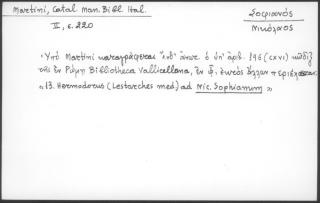 Martini, Catal Man. Bibl Ital.
II, σ. 220
Σοφιανός
Νικόλαος
Ὑπὸ Martini καταγράφεται ὑπ' ἀριθ. 196 (CXVI) κῶδιξ
τῆς ἐν Ρώμῃ Bibliotheca Vallicellana, ἐν ᾧ, ἐκτὸς ἄλλων
« 13. Hermodorus (Lestarches med.) ad Nic. Sophianum »